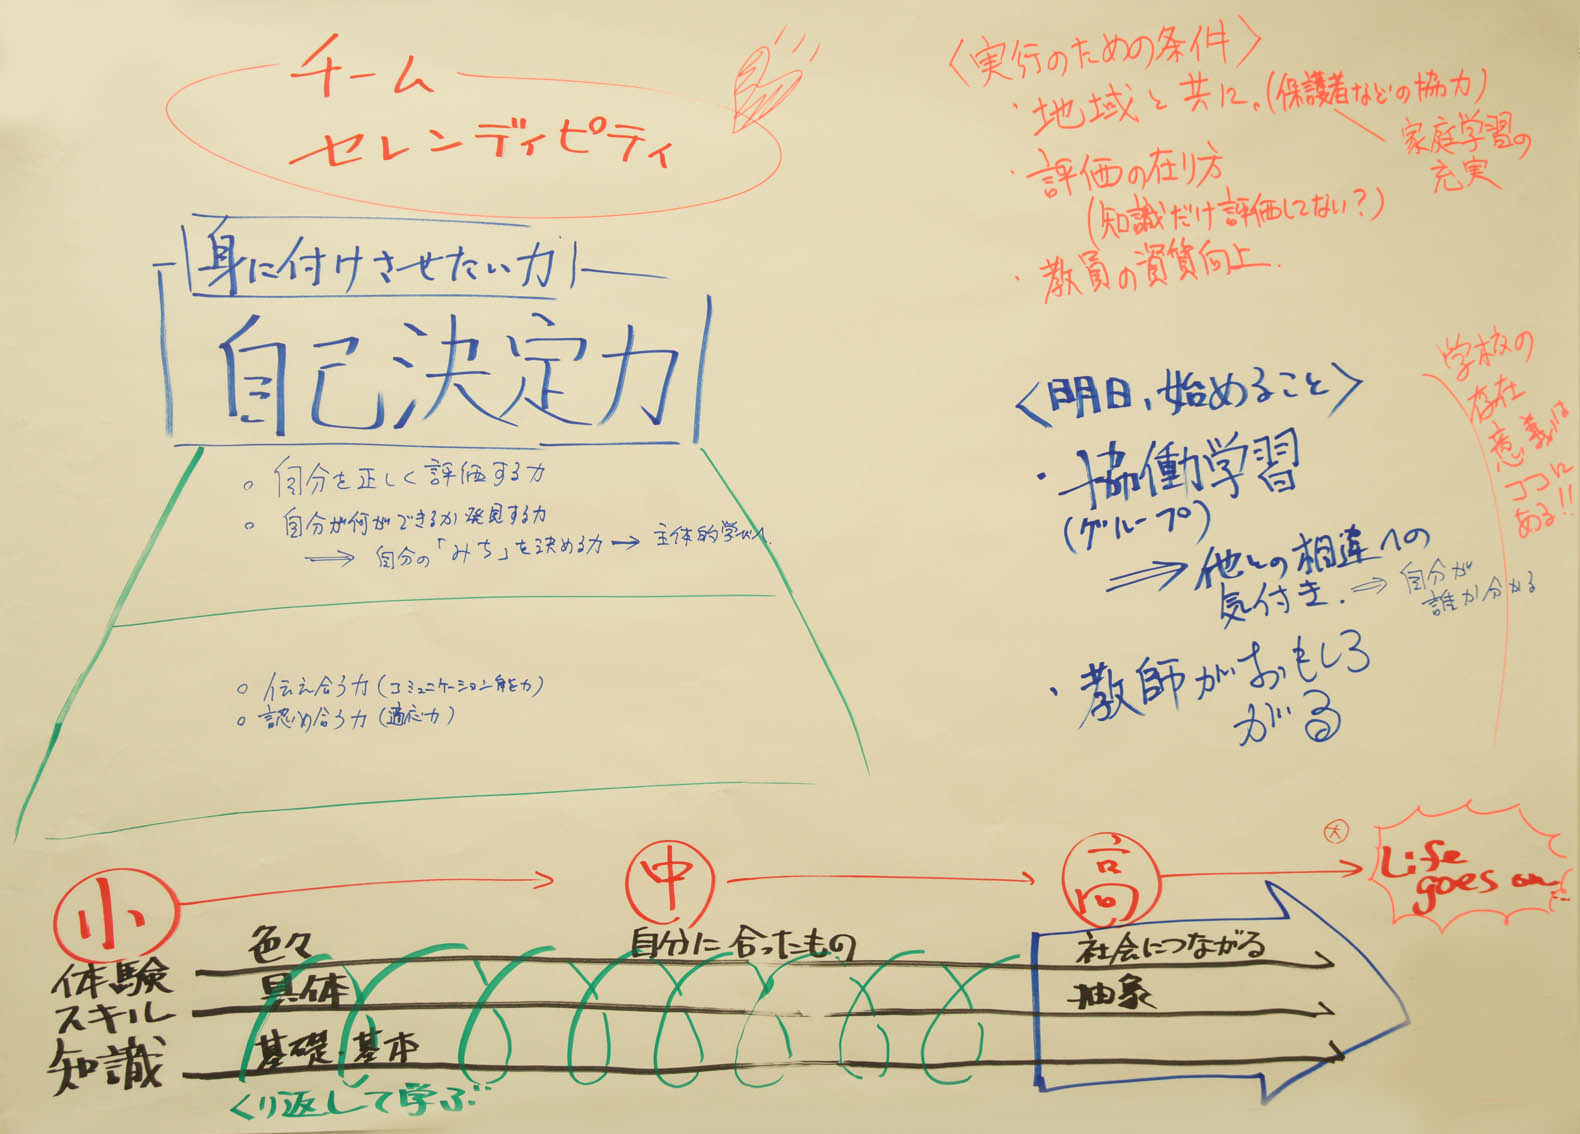 チーム
セレンディピティ
身に付けさせたい力
自己決定力
。自分を正しく評価する力
。自分が何ができるか発見する力
⇒ 自分の「みち」を決める力 → 主体的学びへ
。伝え合う力(コミュニケーション能力)
。認め合う力(適応力)
〈実行のための条件〉
・地域と共に。(保護者などの協力)
家庭学習の
充実
・評価の在り方
(知識だけ評価してない?)
・教員の資質向上
〈明日、始めること〉
・協働学習
(グループ)
⇒ 他との相違への
気付き. ⇒ 自分が
誰か分かる
・教師がおもしろ
がる
学校の
存在
意義は
ココに
ある!!
小 → 中 → 高 → 大
Life
goes on...
体験 色々 自分に合ったもの 社会につながる
スキル 具体 抽象
知識 基礎・基本
くり返して学ぶ